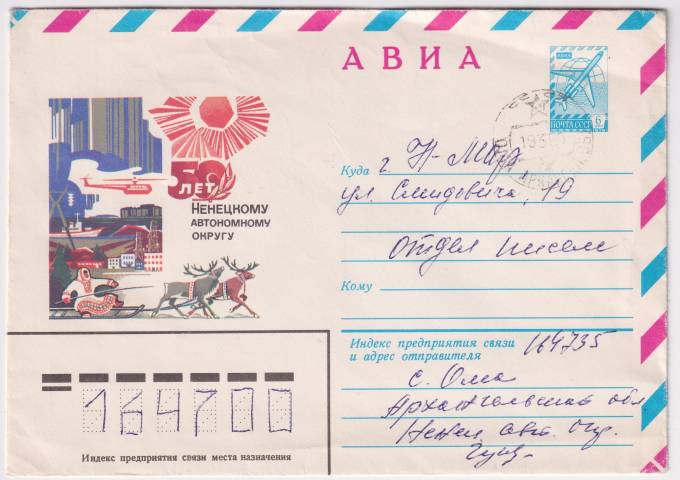 АВИА
АВИА
ПОЧТА СССР 6
50
ЛЕТ
НЕНЕЦКОМУ
АВТОНОМНОМУ
ОКРУГУ
Куда г. Н-Мар
ул. Смидовича, 19
Отдел писем
Кому
Индекс предприятия связи
и адрес отправителя 164735
с. Ома
Архангельская обл
Ненец. авт. окр.
164700
Индекс предприятия связи места назначения